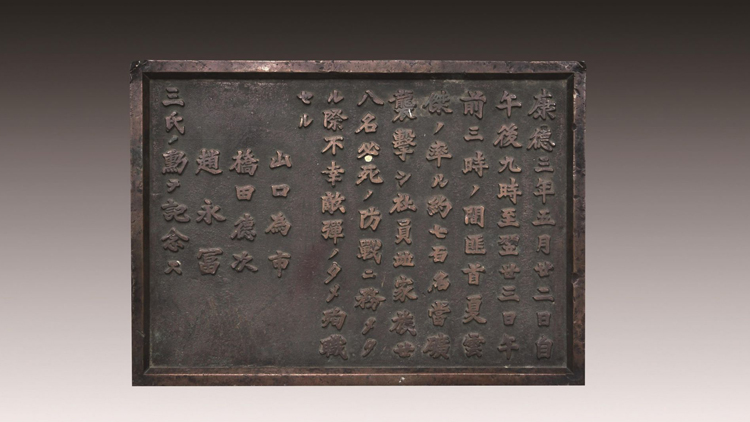 康徳三年五月廿二日自
午後九時至翌廿三日午
前三時ノ間匪首夏雲
傑ノ率ル約七百名當礦
襲擊シ社員並家族廿
八名必死ノ防戰ニ務メタ
ル際不幸敵彈ノタメ殉職
セル
山口為市
橋田億次
趙永富
三氏ノ勳ヲ記念ス